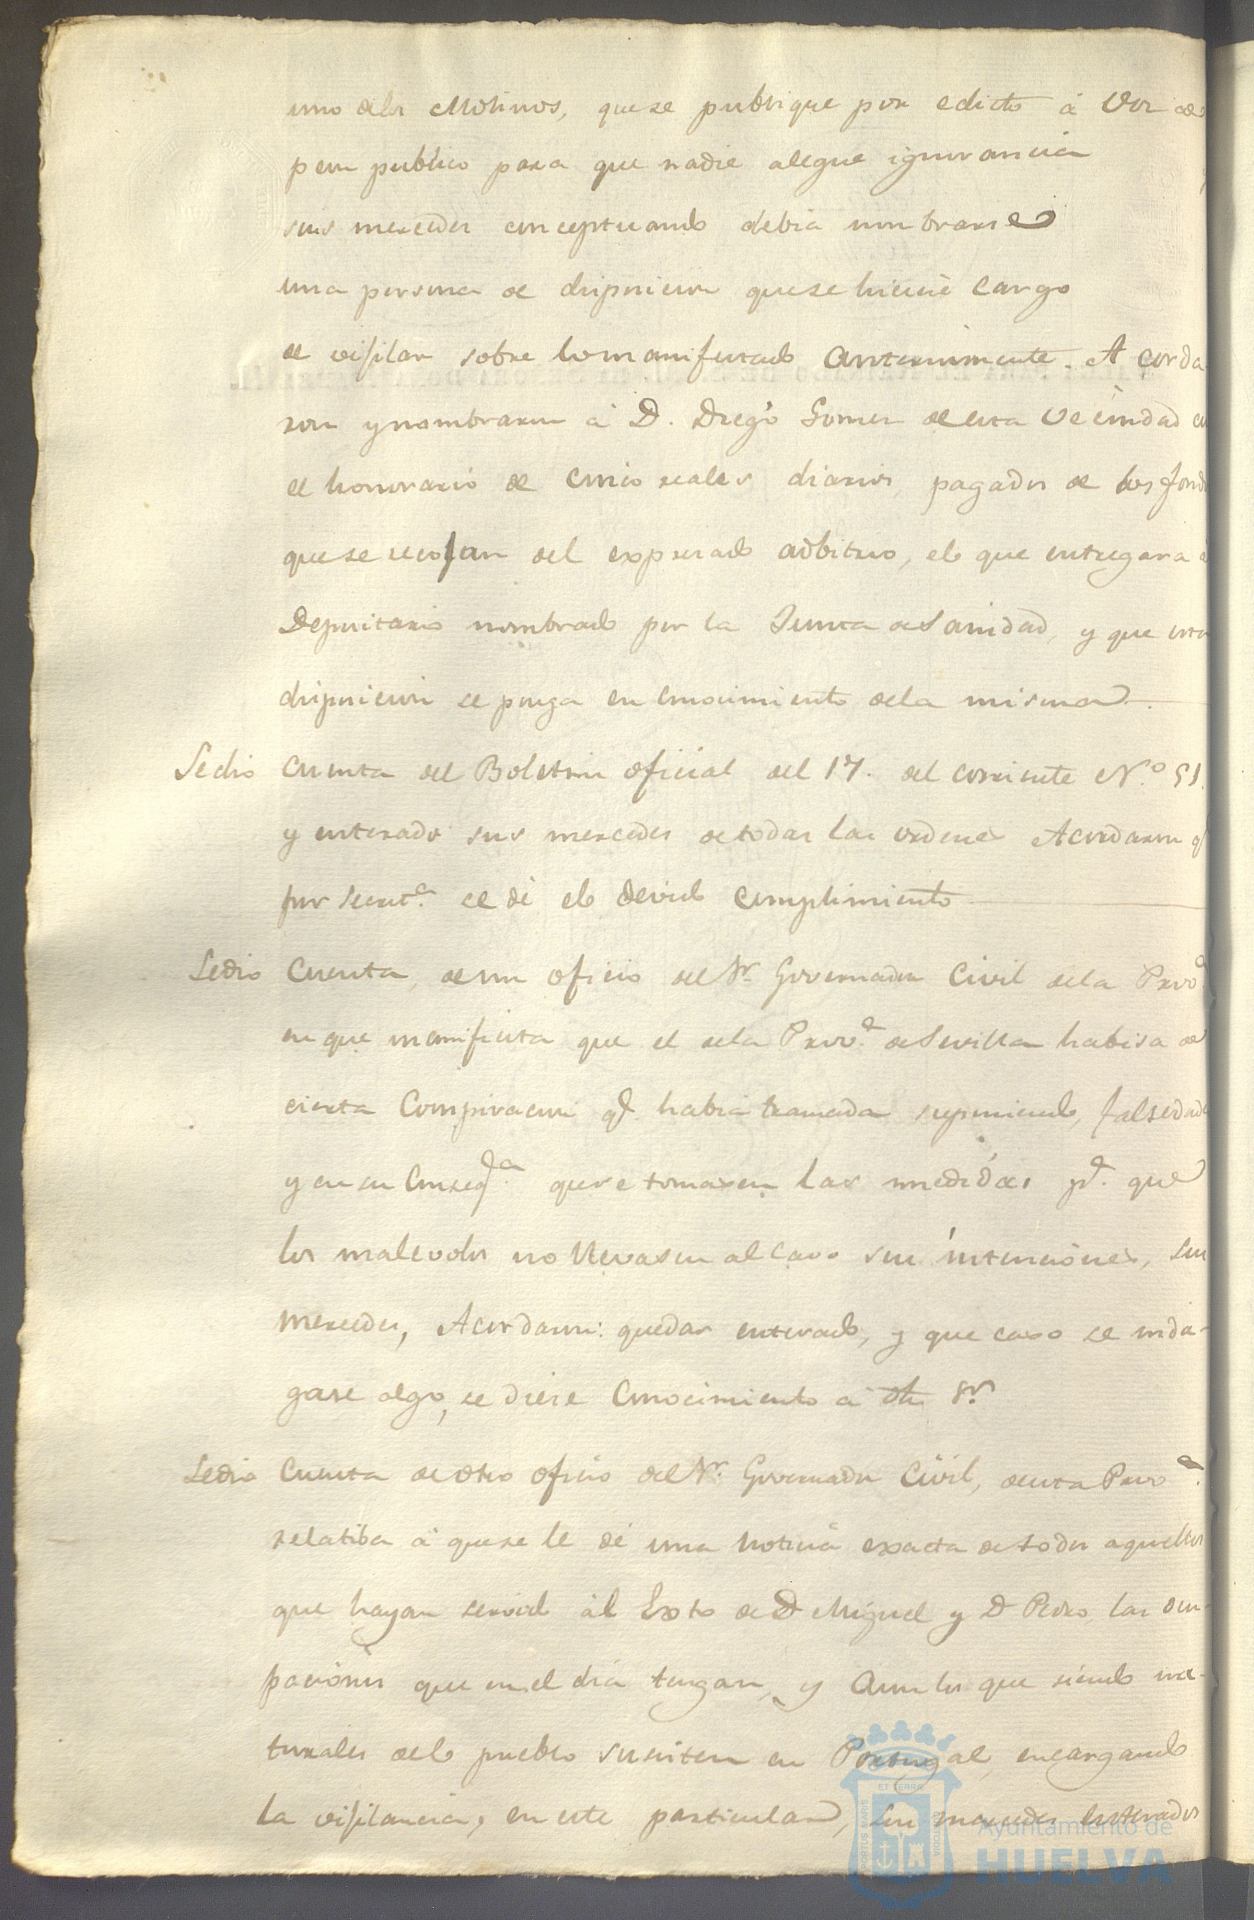 uno de los Molinos, que se publique por edicto á Voz de
peon publico para que nadie alegue ignorancia
sus mercedes conceptuando debia nombrarse
una persona de disposicion que se hiciere cargo
de vijilar sobre lo manifestado anteriormente. Acorda
ron y nombraron á D. Diego Gomez de esta Vecindad con
el honorario de cinco reales diarios pagados de los fondos
que se recojan del expresado adbitrio, el que entregara á
Depositario nombrado por la Junta de Sanidad, y que esta
disposicion se ponga en conocimiento dela misma
Sedio cuenta del Boletin oficial del 17. del corriente Nº. 51.
y enterado sus mercedes de todas las ordenes Acordaron q
por Secretª. se dé el devido cumplimiento
Sedio Cuenta de un oficio del Sr. Governador Civil dela Provª.
en que manifiesta que el dela Provª. de Sevilla habisa de
cierta Conspiracion q. habia tramada suponiendo falsedad
y en su Conseqª. que se tomasen las medidas pª. que
los malevolos no llevasen al cavo sus intenciones, sus
mercedes, Acordaron: quedar enterado, y que caso se inda-
gase algo, se diese Conocimiento á dho Sr.
Sedio Cuenta de otro oficio del Sr. Governador Civil, de esta Provª.
relatiba á que se le dé una noticia exacta de todos aquellos
que hayan servido al Exto de D Miguel y D Pedro las ocu-
paciónes que en el dia tengan, y aun los que siendo na-
turales del pueblo ecsisten en Portugal encargando
la vijilancia, en este particular, sus mercedes enterados
PORTUS MARIS ET TERRAE CUSTODIA
Ayuntamiento de
HUELVA